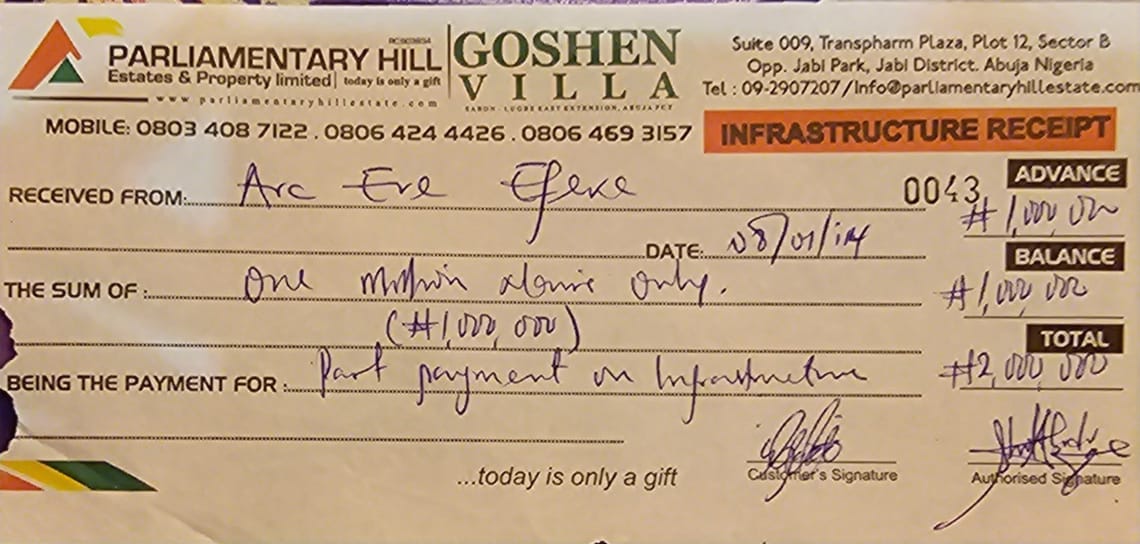 RC:903854
PARLIAMENTARY HILL
Estates & Property limited | today is only a gift
www.parliamentaryhillestate.com
GOSHEN
VILLA
SABON - LUGBE EAST EXTENSION, ABUJA FCT
Suite 009, Transpharm Plaza, Plot 12, Sector B
Opp. Jabi Park, Jabi District. Abuja Nigeria
Tel : 09-2907207 / Info@parliamentaryhillestate.com
MOBILE: 0803 408 7122 . 0806 424 4426 . 0806 469 3157
INFRASTRUCTURE RECEIPT
RECEIVED FROM: Arc Eve Efeke
0043
ADVANCE
₦1,000,000
DATE: 08/01/14
BALANCE
THE SUM OF : One Million Naira Only.
₦1,000,000
(₦1,000,000)
TOTAL
BEING THE PAYMENT FOR : Part payment on Infrastructure
₦2,000,000
...today is only a gift
Customer's Signature
Authorised Signature